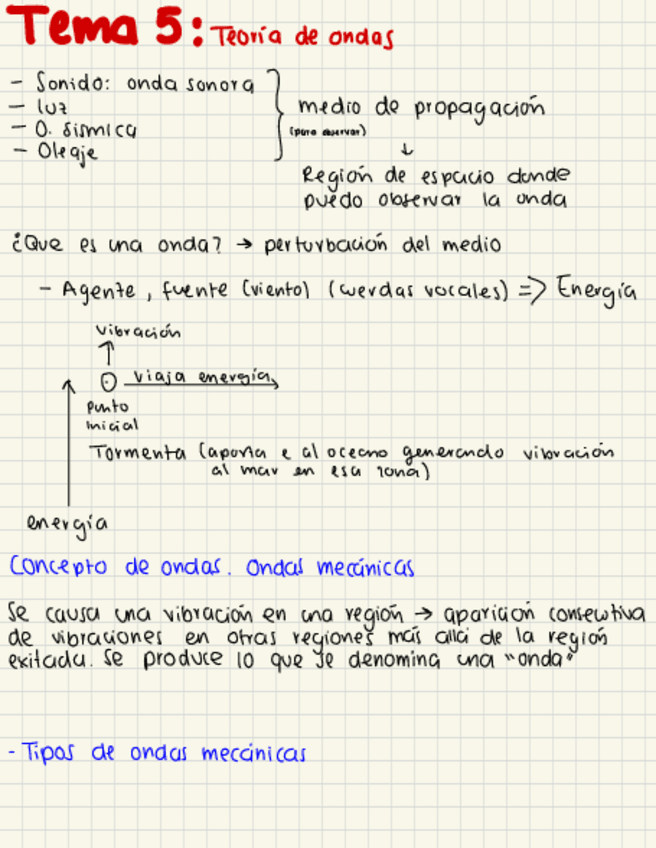 Tema 5: Teoría de ondas
- Sonido: onda sonora
- luz
- O. sismica
- Oleaje
medio de propagación
(para observar)
↓
Región de espacio donde
puedo observar la onda
¿Que es una onda? → perturbación del medio
- Agente, fuente (viento) (cuerdas vocales) => Energía
vibración
↑
viaja energía
punto
inicial
Tormenta (aporta e al oceano generando vibración
al mar en esa zona)
energía
Concepto de ondas. Ondas mecánicas
Se causa una vibración en una región → aparición consecutiva
de vibraciones en otras regiones más allá de la región
exitada. Se produce lo que se denomina una "onda"
- Tipos de ondas mecánicas